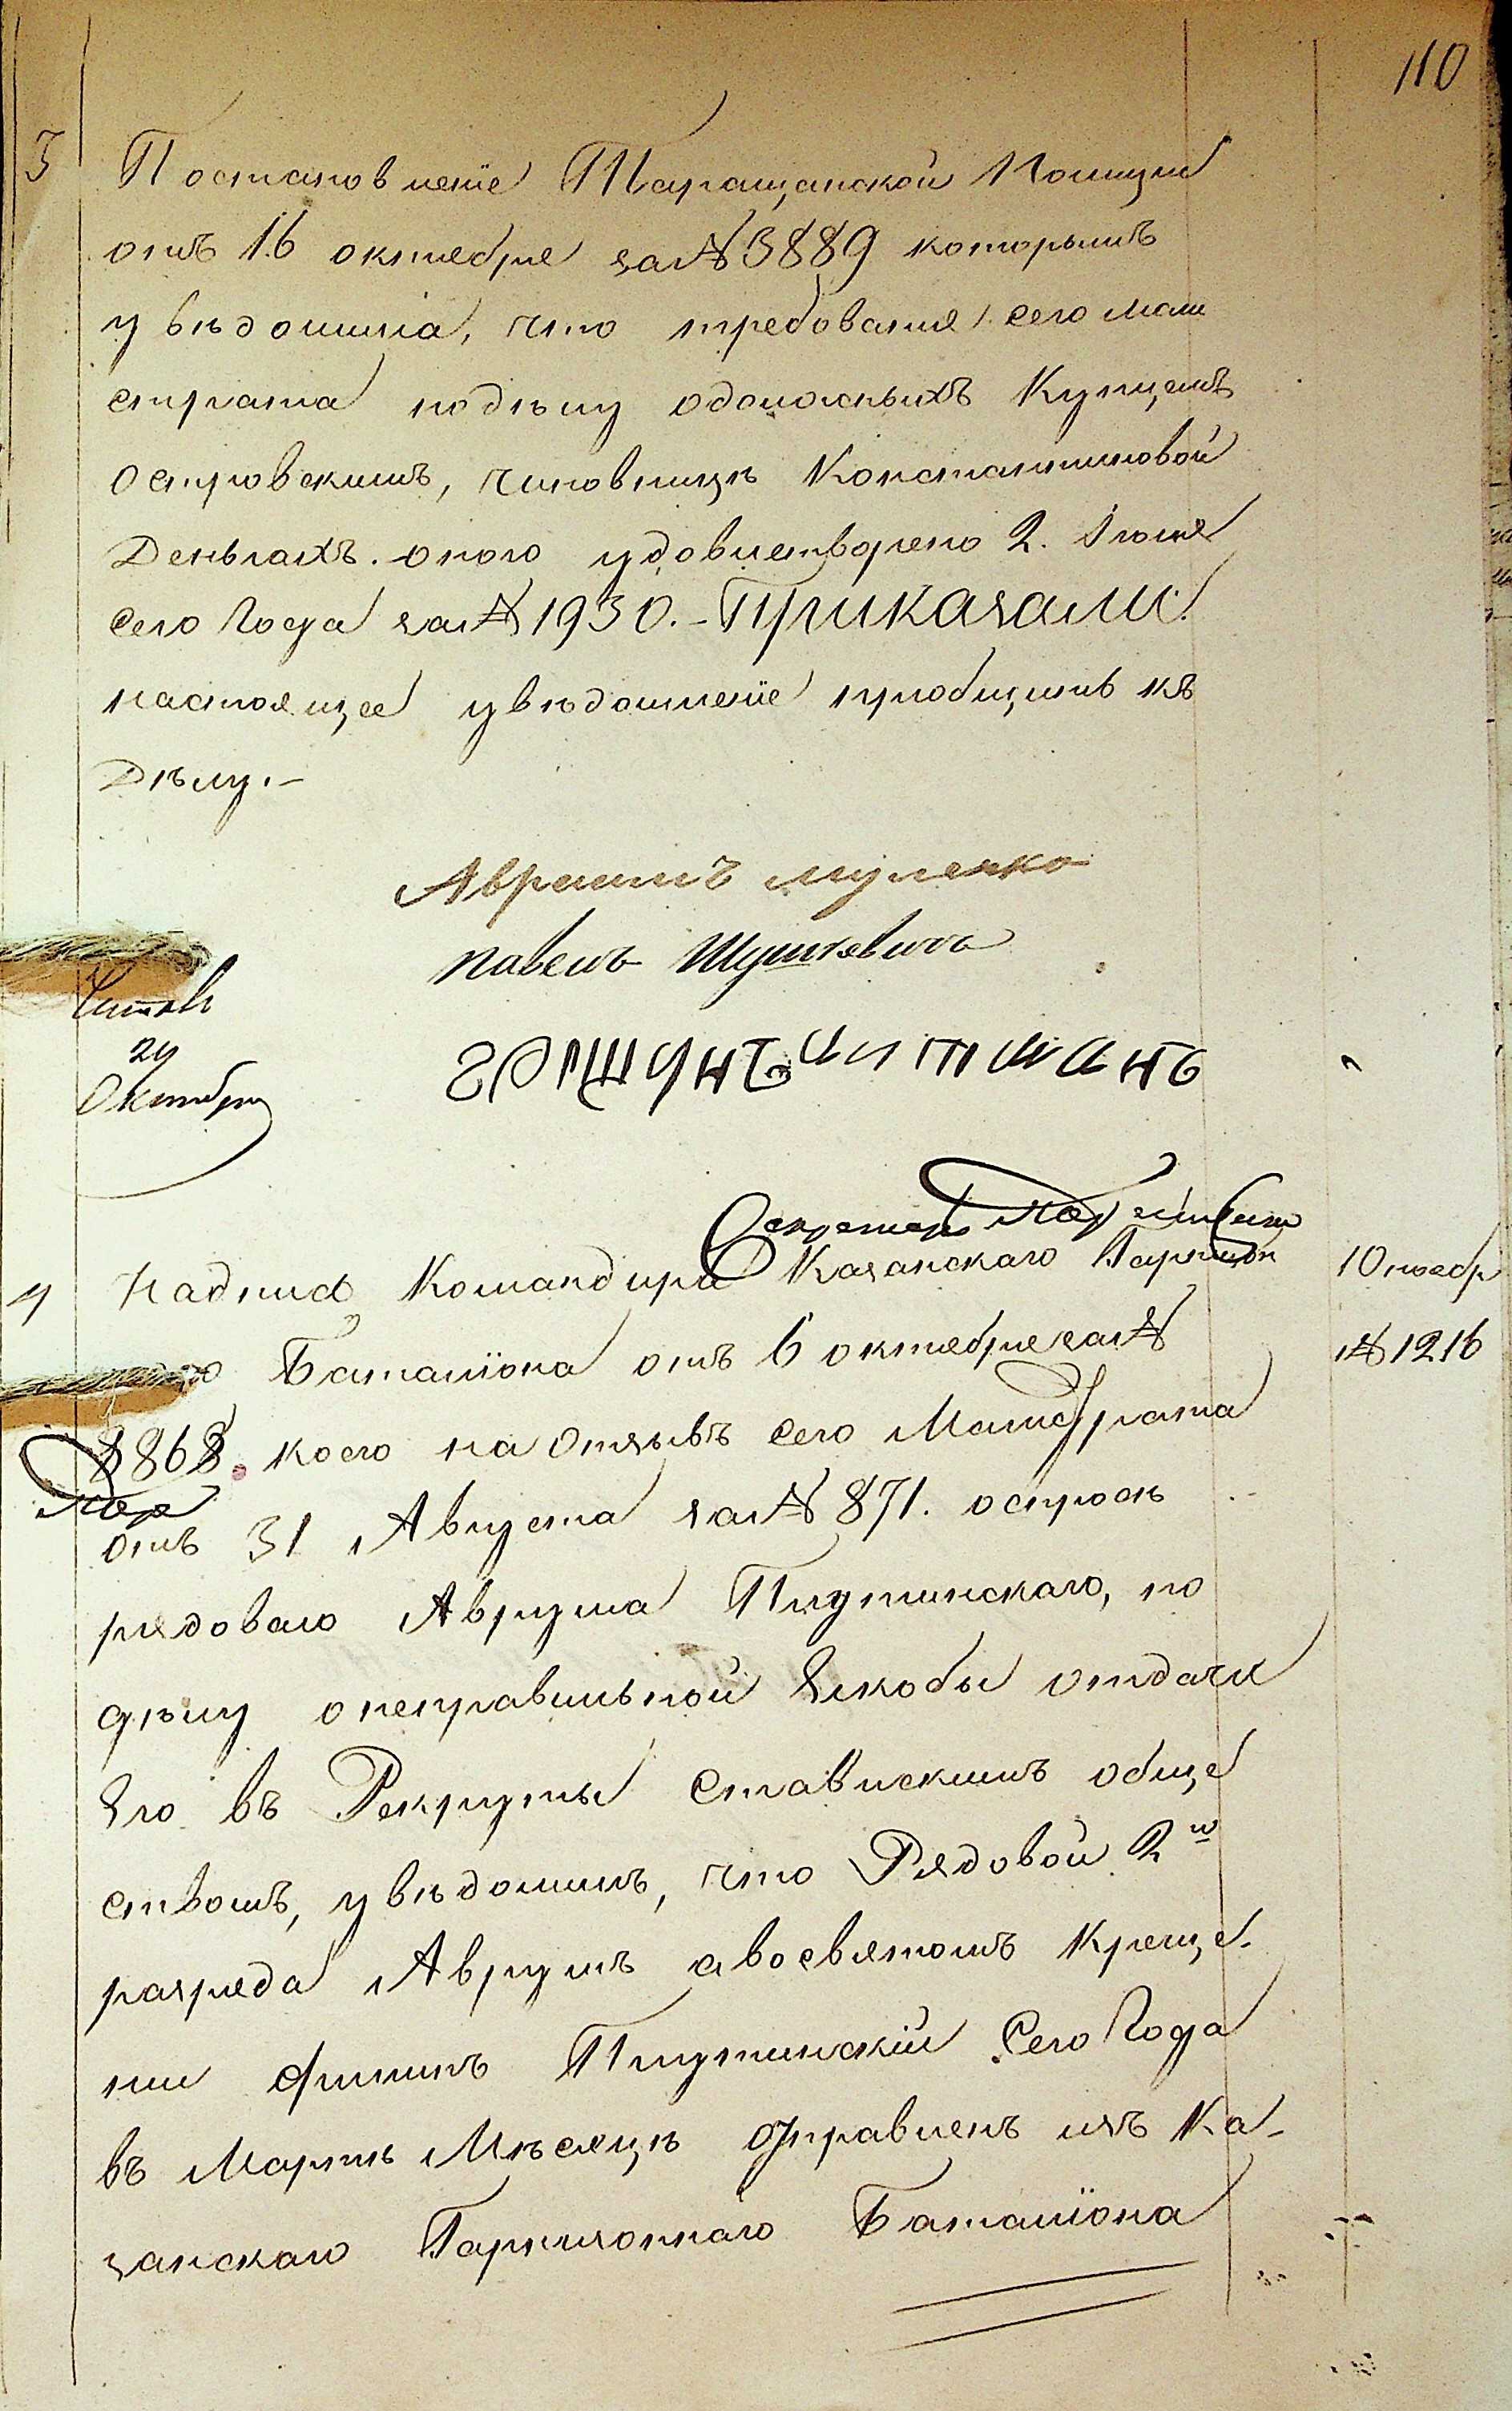 110
3 Постановленіе Таращанской Полиціи
отъ 16 октебря за № 3889 которымъ
увѣдомила, что требованія сего маги
страта подѣлу одолжныхъ Купцемъ
Островскимъ, чиновницѣ Константиновой
Деньгахъ. оного удовлетворено 2. Іюня
сего Года за № 1930.- Приказали:
настоящее увѣдомленіе пріобщить къ
Дѣлу.-
Аврамъ
Павелъ Шушкевичъ
Читалъ
24
Октября
Секретарь
4 Надпись Командира Казанскаго Гарнизон
10 ноебр
Баталіона отъ 6 октебря за №
№ 1216
8868. коего на отзывъ сего Магистрата
отъ 31 Августа за № 871. оспросѣ
рядоваго Аврума Плутинскаго, по
дѣлу онеправильной Якобы отдачи
Его въ Рекруты Ставискимъ обще
ствомъ, увѣдомилъ, что Рядовой 2го
разряда Аврумъ авосвятомъ Креще-
ніи Филипъ Плутинскій Сего Года
въ Мартѣ Мѣсяцѣ отправленъ изъ Ка-
занскаго Гарнизоннаго Баталіона